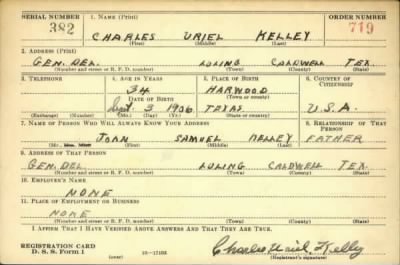 SERIAL NUMBER 1. NAME (Print) ORDER NUMBER
382 CHARLES URIEL KELLEY 719
(First) (Middle) (Last)
2. ADDRESS (Print)
GEN. DEL. LULING CALDWELL TEX.
(Number and street or R. F. D. number) (Town) (County) (State)
3. TELEPHONE 4. AGE IN YEARS 5. PLACE OF BIRTH 6. COUNTRY OF CITIZENSHIP
34 HARWOOD
DATE OF BIRTH (Town or county)
Sept. 3 1906 TEXAS U.S.A.
(Exchange) (Number) (Mo.) (Day) (Yr.) (State or country)
7. NAME OF PERSON WHO WILL ALWAYS KNOW YOUR ADDRESS 8. RELATIONSHIP OF THAT PERSON
JOHN SAMUEL KELLEY FATHER
(First) (Middle) (Last)
9. ADDRESS OF THAT PERSON
GEN. DEL. LULING CALDWELL TEX.
(Number and street or R. F. D. number) (Town) (County) (State)
10. EMPLOYER'S NAME
NONE
11. PLACE OF EMPLOYMENT OR BUSINESS
NONE
(Number and street or R. F. D. number) (Town) (County) (State)
I AFFIRM THAT I HAVE VERIFIED ABOVE ANSWERS AND THAT THEY ARE TRUE.
REGISTRATION CARD
D. S. S. FORM 1 (over) Charles Uriel Kelley
(Registrant's signature)